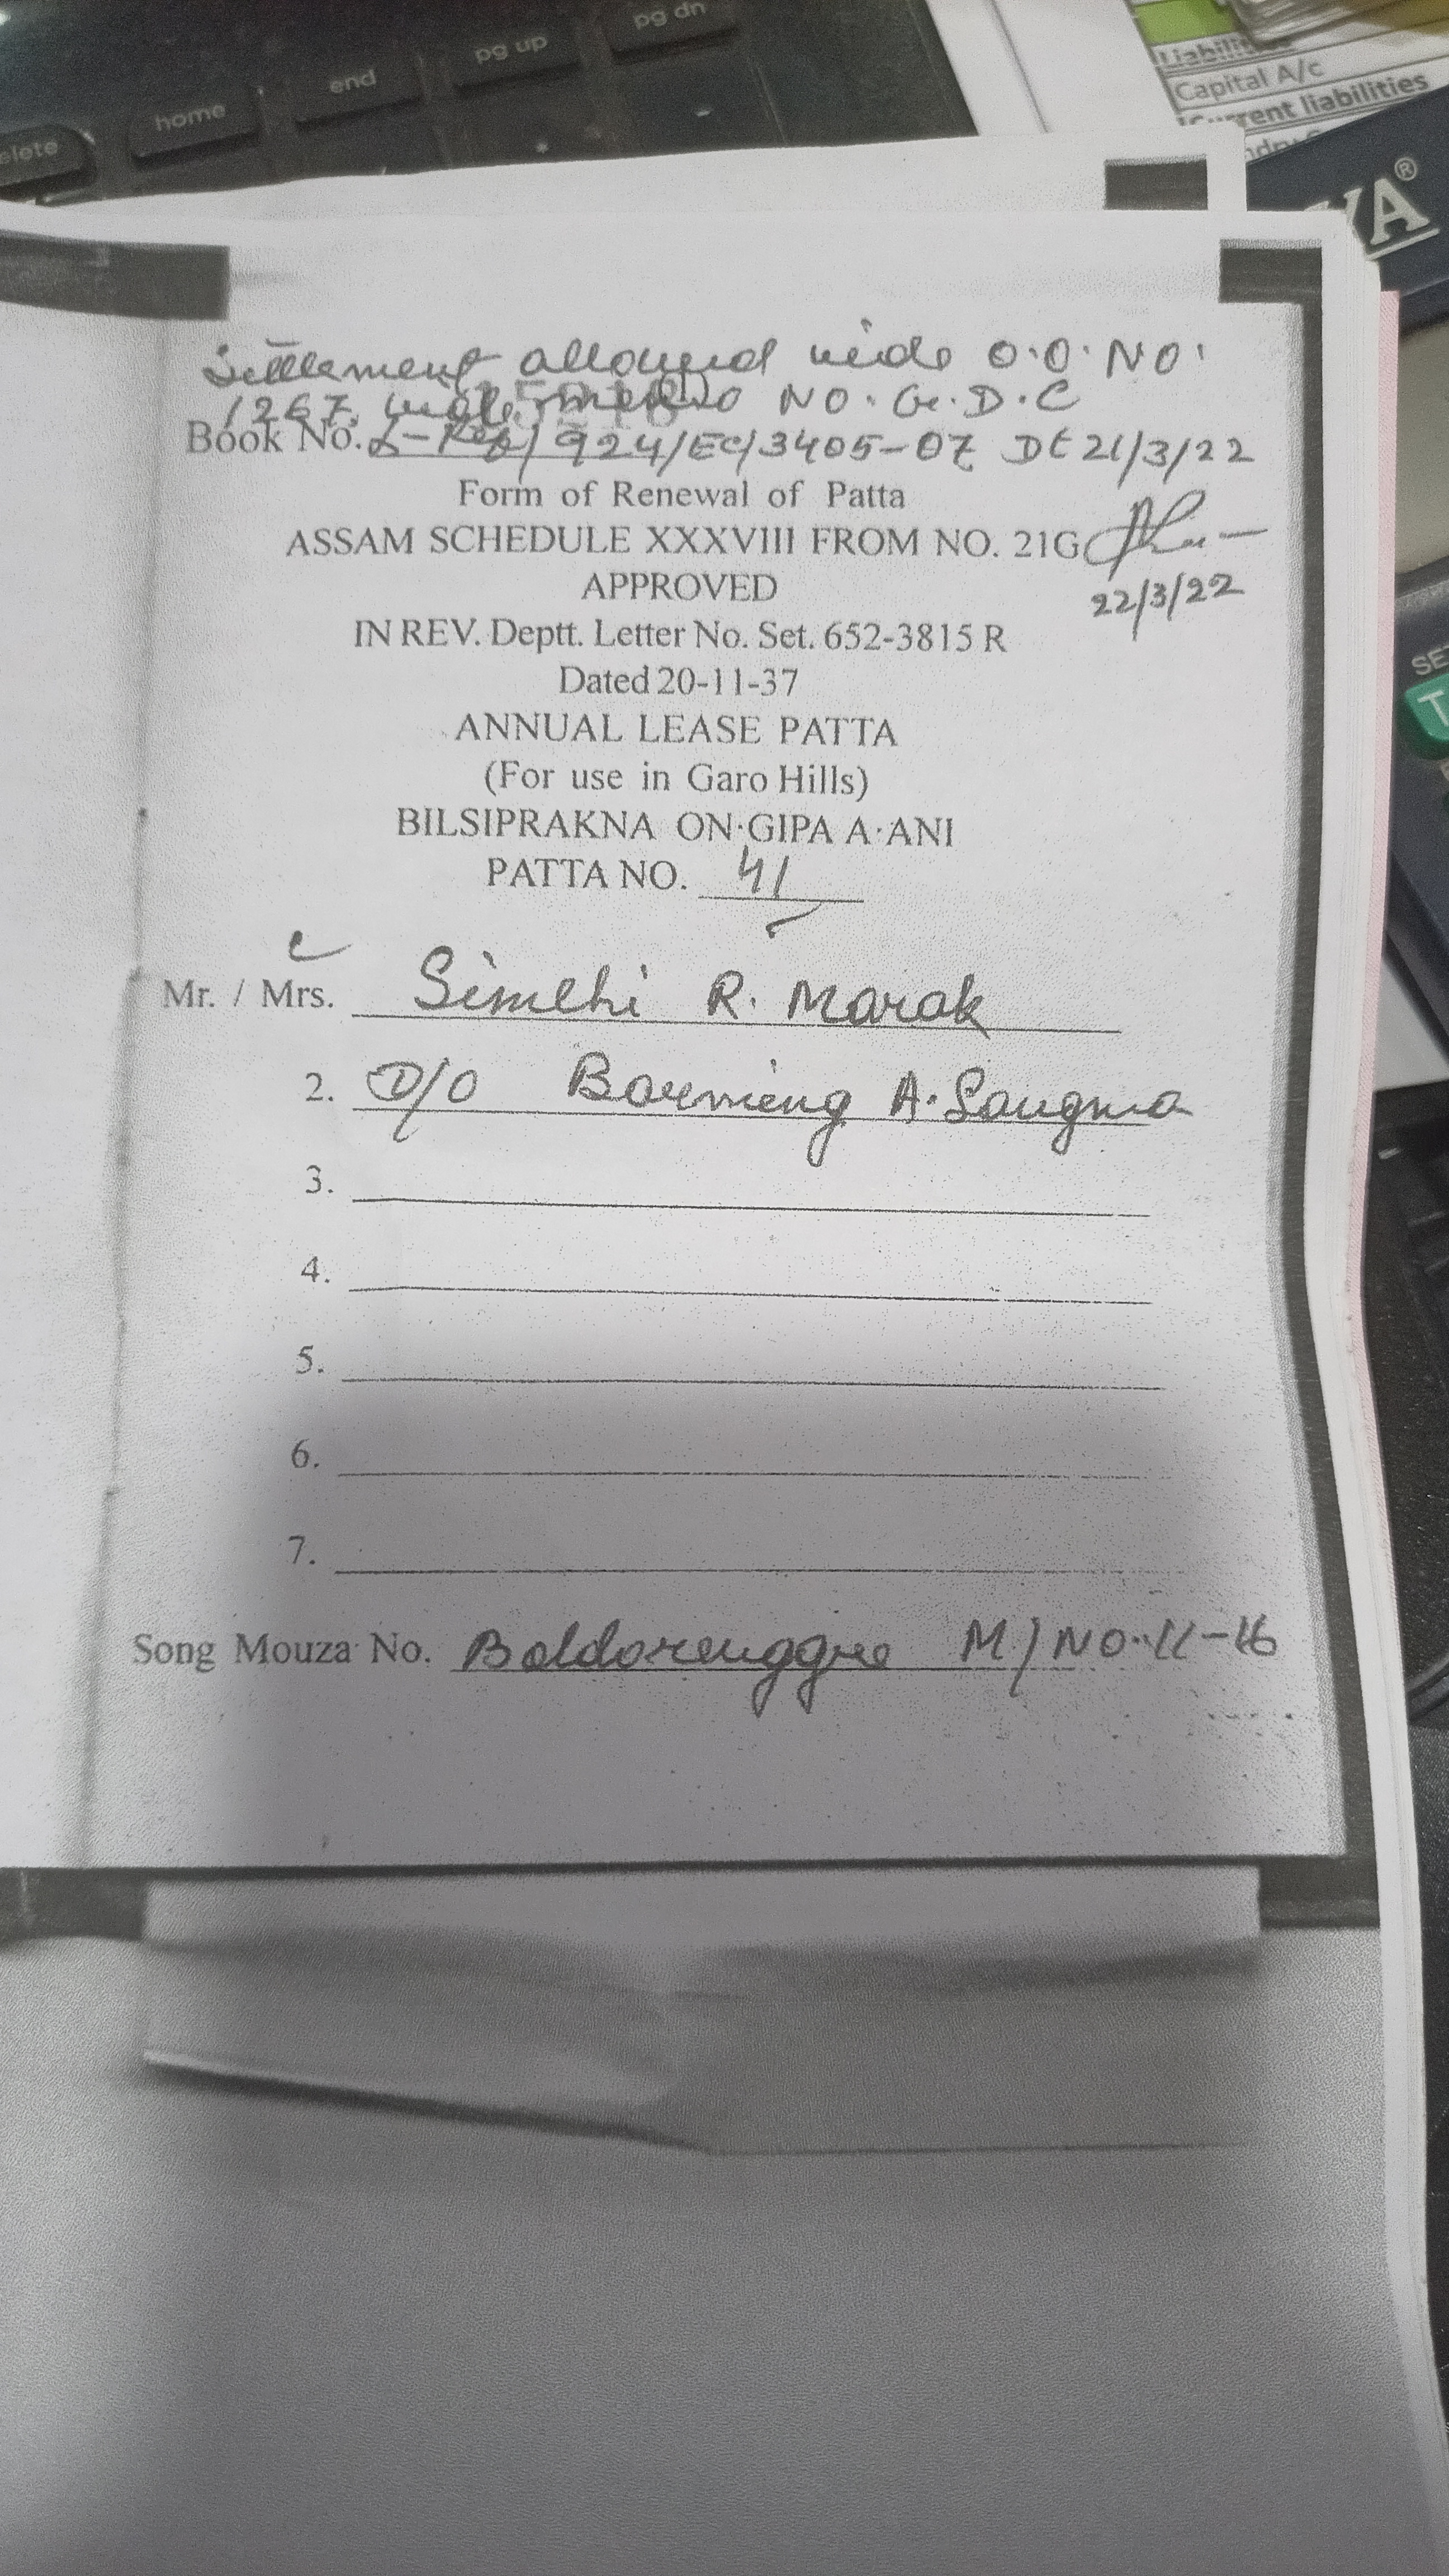 pg dn
pg up
end
home
elete
Liabilit
Capital A/c
Current liabilities
ndry
YA®
Settlement allowed vide O.O. NO.
1267, vide memo NO. G.D.C
Book No. L-Rep/924/EC/3405-07 Dt 21/3/22
Form of Renewal of Patta
ASSAM SCHEDULE XXXVIII FROM NO. 21G
22/3/22
APPROVED
IN REV. Deptt. Letter No. Set. 652-3815 R
Dated 20-11-37
ANNUAL LEASE PATTA
(For use in Garo Hills)
BILSIPRAKNA ON·GIPA A·ANI
PATTA NO. 41
Mr. / Mrs. Simchi R. Marak
2. D/O A. Sangma
3.
4.
5.
6.
7.
Song Mouza No. Boldorenggre M/NO. II-16
SE
T